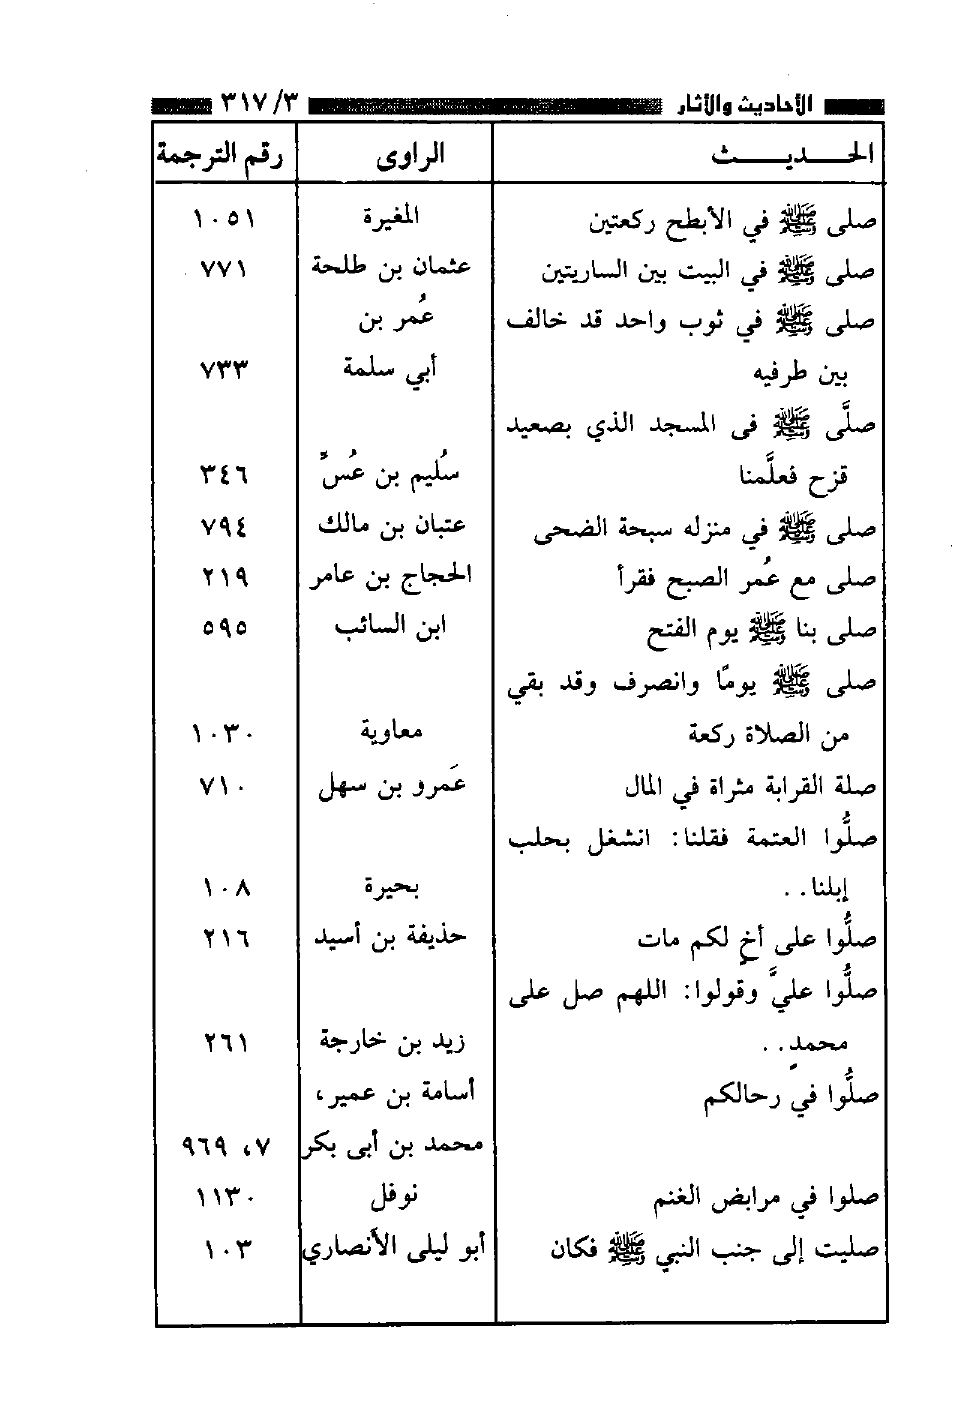 الأحاديث والآثار ٣/ ٣١٧
الحـــديـــث الراوى رقم الترجمة
صلى ﷺ في الأبطح ركعتين المغيرة ١٠٥١
صلى ﷺ في البيت بين الساريتين عثمان بن طلحة ٧٧١
صلى ﷺ في ثوب واحد قد خالف عُمر بن
بين طرفيه أبي سلمة ٧٣٣
صلَّى ﷺ فى المسجد الذي بصعيد
قزح فعلَّمنا سُليم بن عُسٍّ ٣٤٦
صلى ﷺ في منزله سبحة الضحى عتبان بن مالك ٧٩٤
صلى مع عُمر الصبح فقرأ الحجاج بن عامر ٢١٩
صلى بنا ﷺ يوم الفتح ابن السائب ٥٩٥
صلى ﷺ يومًا وانصرف وقد بقي
من الصلاة ركعة معاوية ١٠٣٠
صلة القرابة مثراة في المال عَمرو بن سهل ٧١٠
صلُّوا العتمة فقلنا: انشغل بحلب
إبلنا.. بحيرة ١٠٨
صلُّوا على أخٍ لكم مات حذيفة بن أسيد ٢١٦
صلُّوا عليَّ وقولوا: اللهم صل على
محمدٍ.. زيد بن خارجة ٢٦١
صلُّوا في رحالكم أسامة بن عمير،
محمد بن أبى بكر ٧، ٩٦٩
صلوا في مرابض الغنم نوفل ١١٣٠
صليت إلى جنب النبي ﷺ فكان أبو ليلى الأنصاري ١٠٣